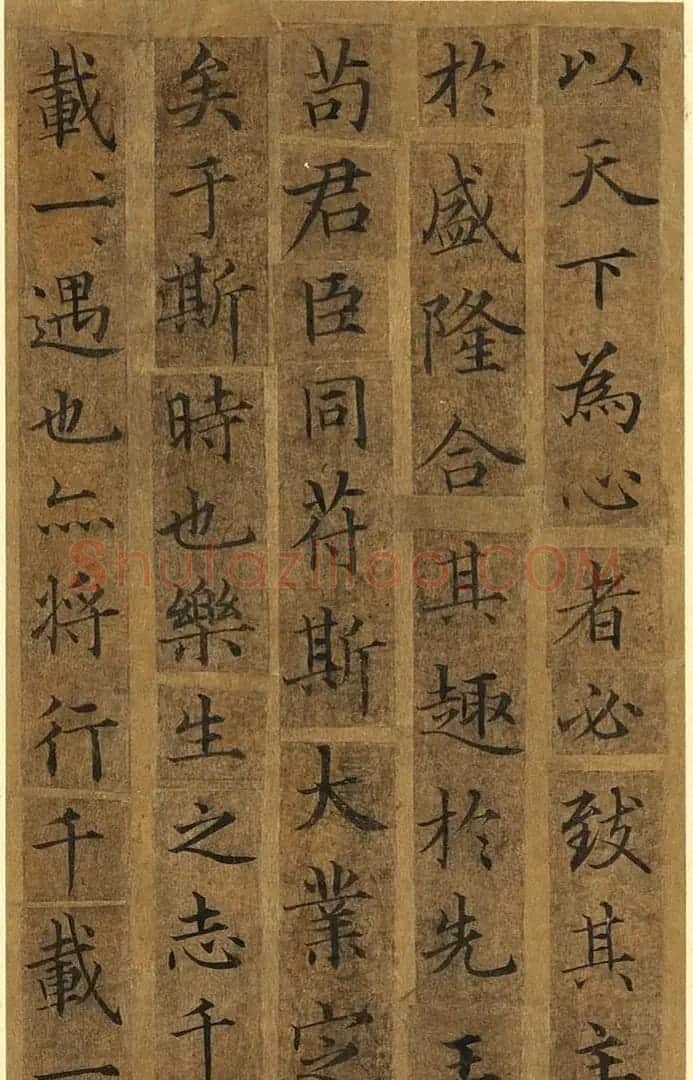 以天下為心者必致其主
於盛隆合其趣於先王
苟君臣同荷斯大業定
矣于斯時也樂生之志千
載一遇也亦將行千載一
Shufaziliao.COM